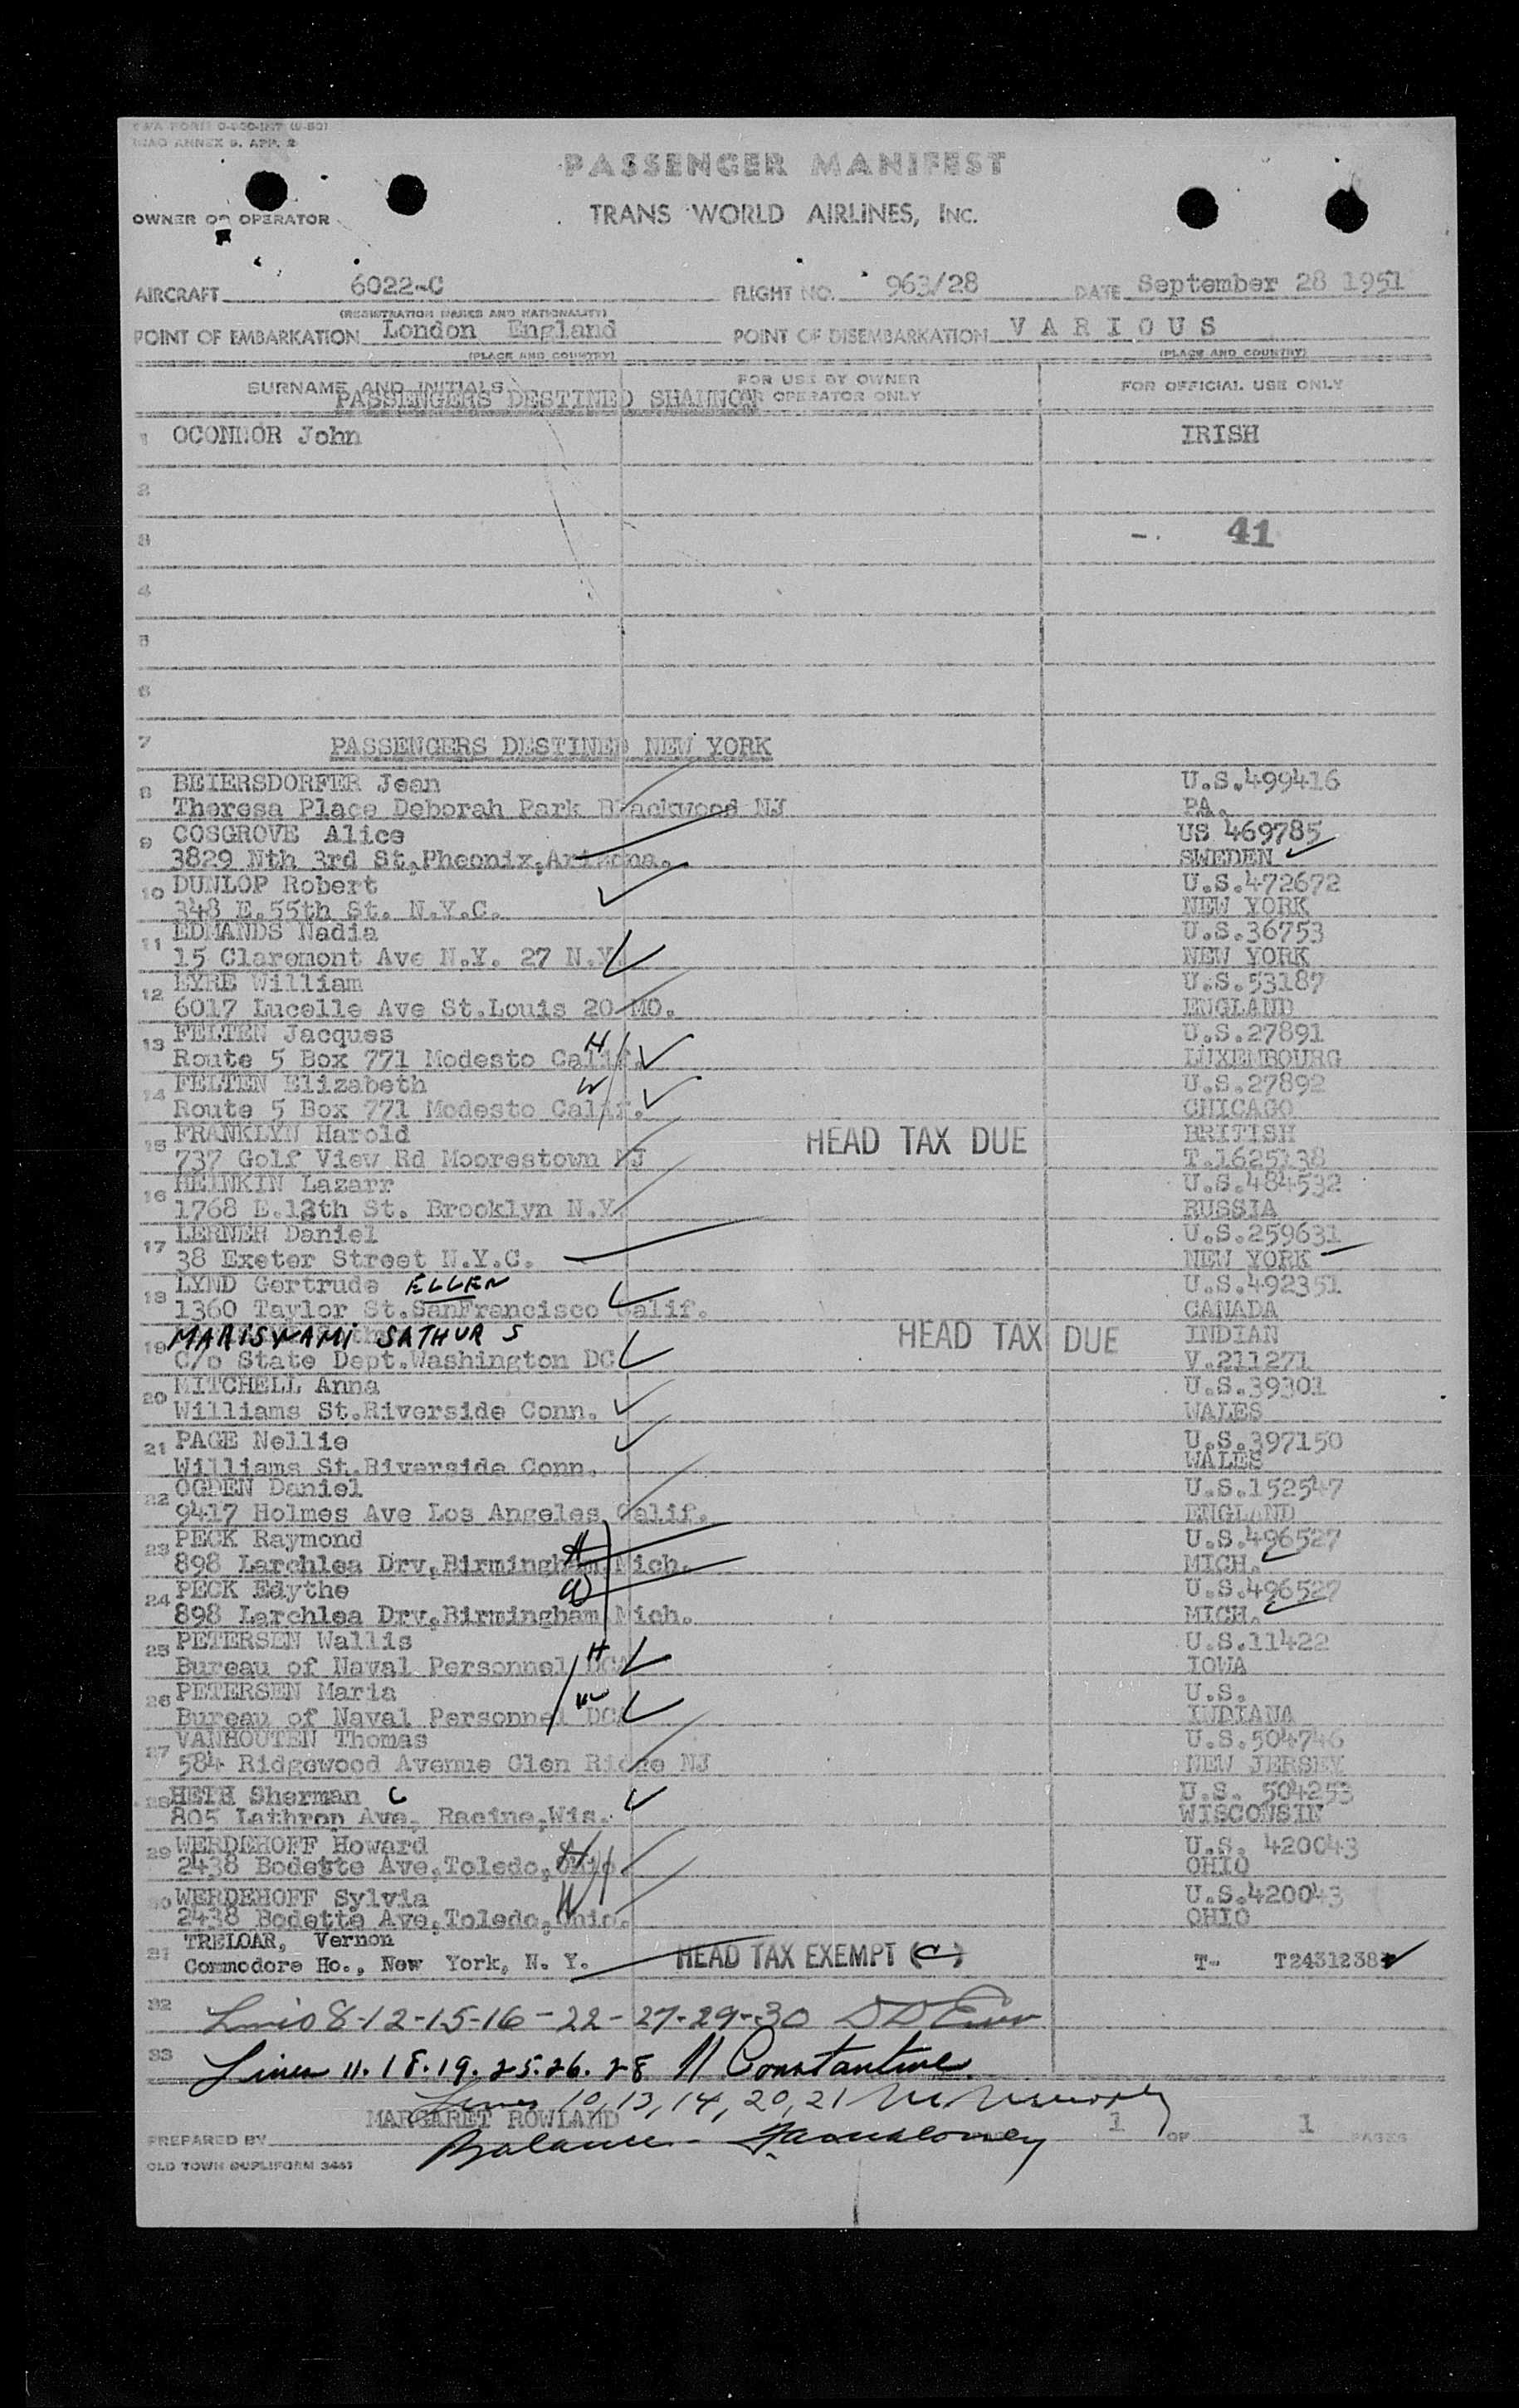 TWA FORM
ICAO ANNEX 9, APP. 2
PASSENGER MANIFEST
OWNER OR OPERATOR
TRANS WORLD AIRLINES, INC.
AIRCRAFT 6022-C FLIGHT NO. 963/28 DATE September 28 1951
(REGISTRATION MARKS AND NATIONALITY)
POINT OF EMBARKATION London England POINT OF DISEMBARKATION VARIOUS
(PLACE AND COUNTRY) (PLACE AND COUNTRY)
SURNAME AND INITIALS FOR USE BY OWNER OR OPERATOR ONLY FOR OFFICIAL USE ONLY
PASSENGERS DESTINED SHANNON
1 OCONNOR John IRISH
2
3 - 41
4
5
6
7 PASSENGERS DESTINED NEW YORK
8 BEIERSDORFER Jean U.S.499416
Theresa Place Deborah Park Blackwood NJ PA.
9 COSGROVE Alice US 469785
3829 Nth 3rd St,Pheonix,Arizona. SWEDEN
10 DUNLOP Robert U.S.472672
348 E.55th St. N.Y.C. NEW YORK
11 EDMANDS Nadia U.S.36753
15 Claremont Ave N.Y. 27 N.Y. NEW YORK
12 EYRE William U.S.53187
6017 Lucelle Ave St.Louis 20 MO. ENGLAND
13 FELTEN Jacques H U.S.27891
Route 5 Box 771 Modesto Calif. LUXEMBOURG
14 FELTEN Elizabeth W U.S.27892
Route 5 Box 771 Modesto Calif. CHICAGO
15 FRANKLYN Harold HEAD TAX DUE BRITISH
737 Golf View Rd Moorestown NJ T.1625138
16 HEINKIN Lazarr U.S.484532
1768 E.12th St. Brooklyn N.Y. RUSSIA
17 LERNER Daniel U.S.259631
38 Exeter Street N.Y.C. NEW YORK
18 LYND Gertrude ELLEN U.S.492351
1360 Taylor St.SanFrancisco Calif. CANADA
19 MARISWAMI SATHUR S HEAD TAX DUE INDIAN
C/o State Dept.Washington DC V.211271
20 MITCHELL Anna U.S.39301
Williams St.Riverside Conn. WALES
21 PAGE Nellie U.S.397150
Williams St.Riverside Conn. WALES
22 OGDEN Daniel U.S.152547
9417 Holmes Ave Los Angeles Calif. ENGLAND
23 PECK Raymond H U.S.496527
898 Larchlea Drv,Birmingham Mich. MICH.
24 PECK Edythe W U.S.496527
898 Larchlea Drv,Birmingham Mich. MICH.
25 PETERSEN Wallis H U.S.11422
Bureau of Naval Personnel DCA IOWA
26 PETERSEN Maria W U.S.
Bureau of Naval Personnel DCA INDIANA
27 VANHOUTEN Thomas U.S.504746
584 Ridgewood Avenue Glen Ridge NJ NEW JERSEY
28 HETH Sherman C U.S. 504253
805 Lathrop Ave, Racine,Wis. WISCONSIN
29 WERDEHOFF Howard H U.S. 420043
2438 Bodette Ave,Toledo,Ohio. OHIO
30 WERDEHOFF Sylvia W U.S.420043
2438 Bodette Ave,Toledo,Ohio. OHIO
31 TRELOAR, Vernon
Commodore Ho., New York, N. Y. HEAD TAX EXEMPT (C) T-
32 Lines 8-12-15-16-22-27-29-30
33 Lines 11.18.19.25.26.28 Constantine
Lines 10,13,14,20,21
MARGARET ROWLAND
PREPARED BY 1 OF 1 PAGES
Balance
OLD TOWN DUPLIFORM 3461